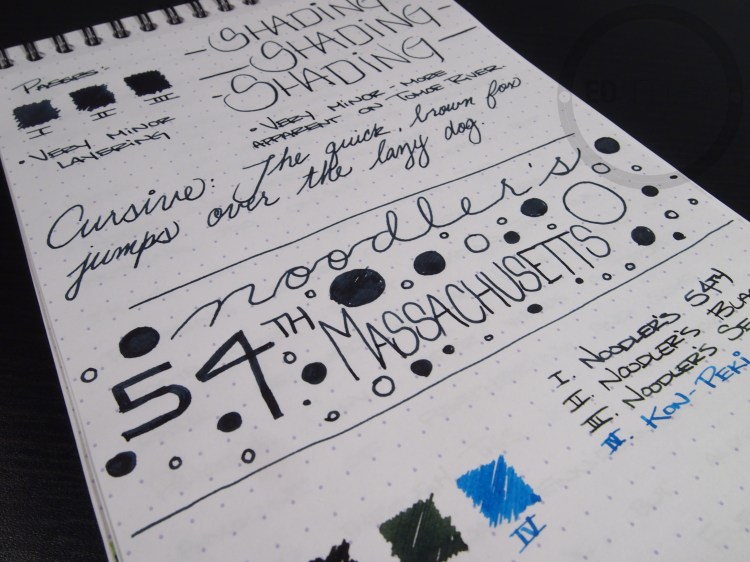 SHADING
SHADING
SHADING
PASSES:
I II III
• VERY MINOR
LAYERING
• VERY MINOR - MORE
APPARENT ON TOMOE RIVER
Cursive: The quick, brown fox
jumps over the lazy dog.
noodler's
54TH MASSACHUSETTS
I. NOODLER'S 54TH
II. NOODLER'S
III. NOODLER'S
IV. KON-PEKI
IV